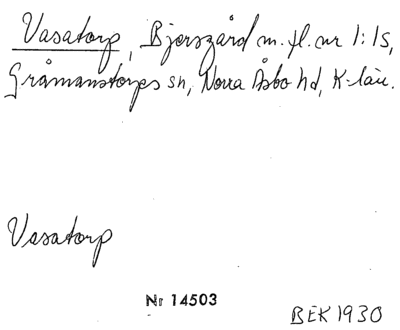 Vasatorp, Bjersgård m. fl. nr 1:15,
Gråmanstorps sn, Norra Åsbo hd, K-län.
Vasatorp
Nr 14503
BEK 1930